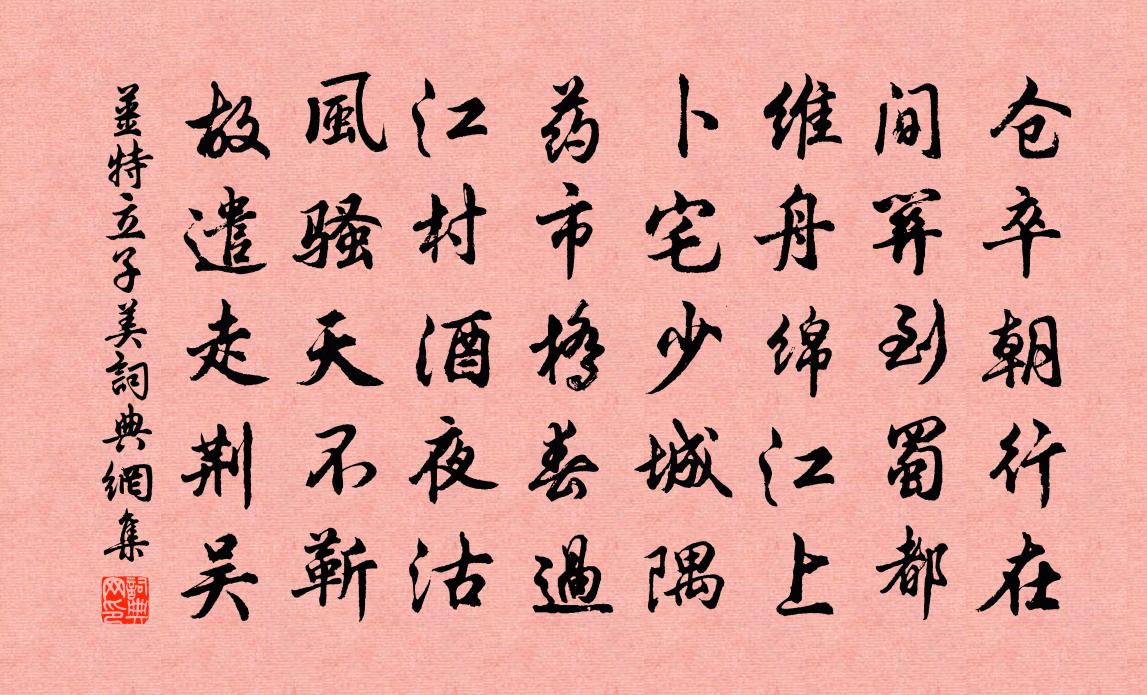 仓卒朝行在
间关到蜀都
维舟绵江上
卜宅少城隅
药市橋春過
江村酒夜沽
風骚天不靳
故遣走荆吴
薑特立子美詞典網集
詞典网印